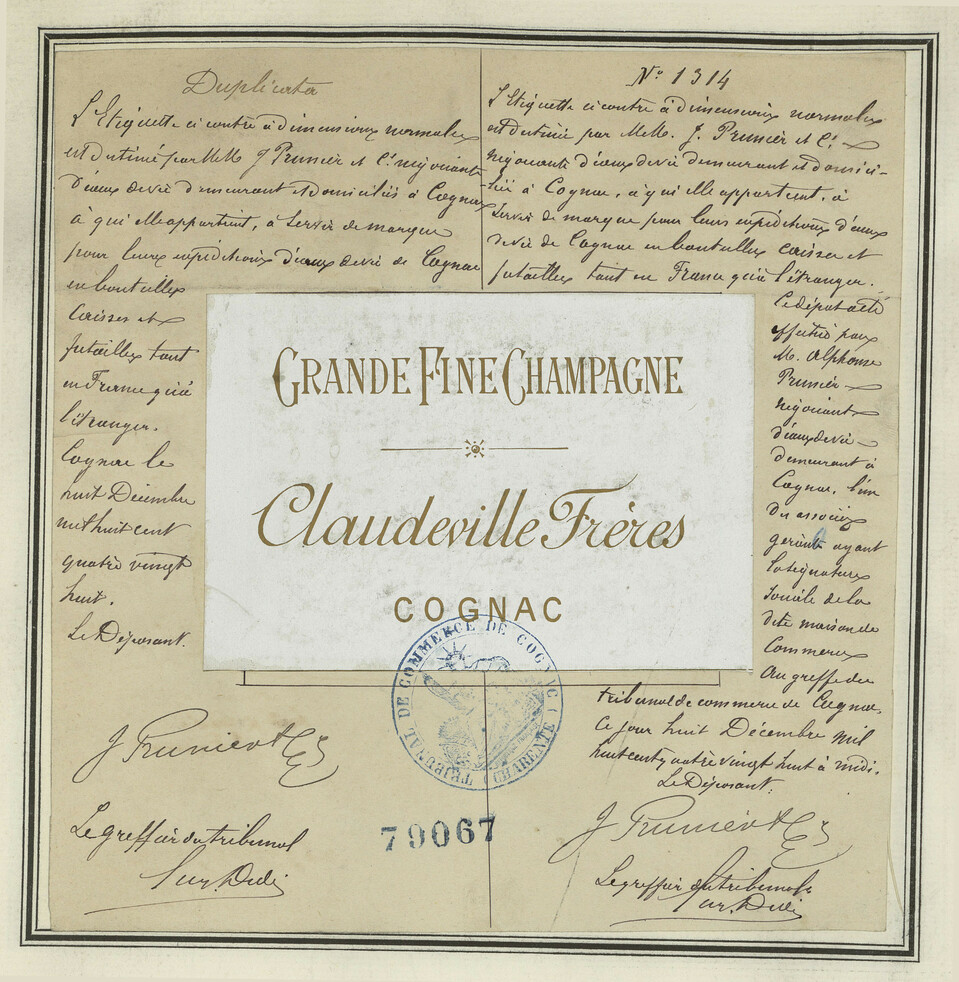 Duplicata
L'Etiquette ci contre à dimensions normales
est destiné par MeM J Prunier et Cie négociants
d'eaux de vie demeurant et domiciliés à Cognac
à qui elle appartient, à servir de marque
pour leurs expéditions d'eaux de vie de Cognac
en bouteilles
Caisses et
futailles tant
en France qu'à
l'étranger.
Cognac le
huit Décembre
mil huit cent
quatre vingt
huit.
Le Déposant.
J Prunier & Cie
Le greffier du tribunal
No 1314
L'Etiquette ci contre à dimensions normales
est destiné par MeM. J. Prunier et Cie
négociants d'eaux de vie demeurant et domici-
-liés à Cognac, à qui elle appartient, à
servir de marque pour leurs expéditions d'eaux
de vie de Cognac en bouteilles caisses et
futailles tant en France qu'à l'étranger.
Ce dépôt a été
effectué par
M. Alphonse
Prunier
négociant
d'eaux de vie
demeurant à
Cognac, l'un
des associés
gérants ayant
la signature
sociale de la
dite maison de
Commerce
Au greffe du
tribunal de commerce de Cognac
Ce jour huit Décembre mil
huit cent quatre vingt huit à midi.
Le Déposant.
J Prunier & Cie
Le greffier du tribunal
GRANDE FINE CHAMPAGNE
Claudeville Frères
COGNAC
TRIBUNAL DE COMMERCE DE COGNAC (CHARENTE)
79067